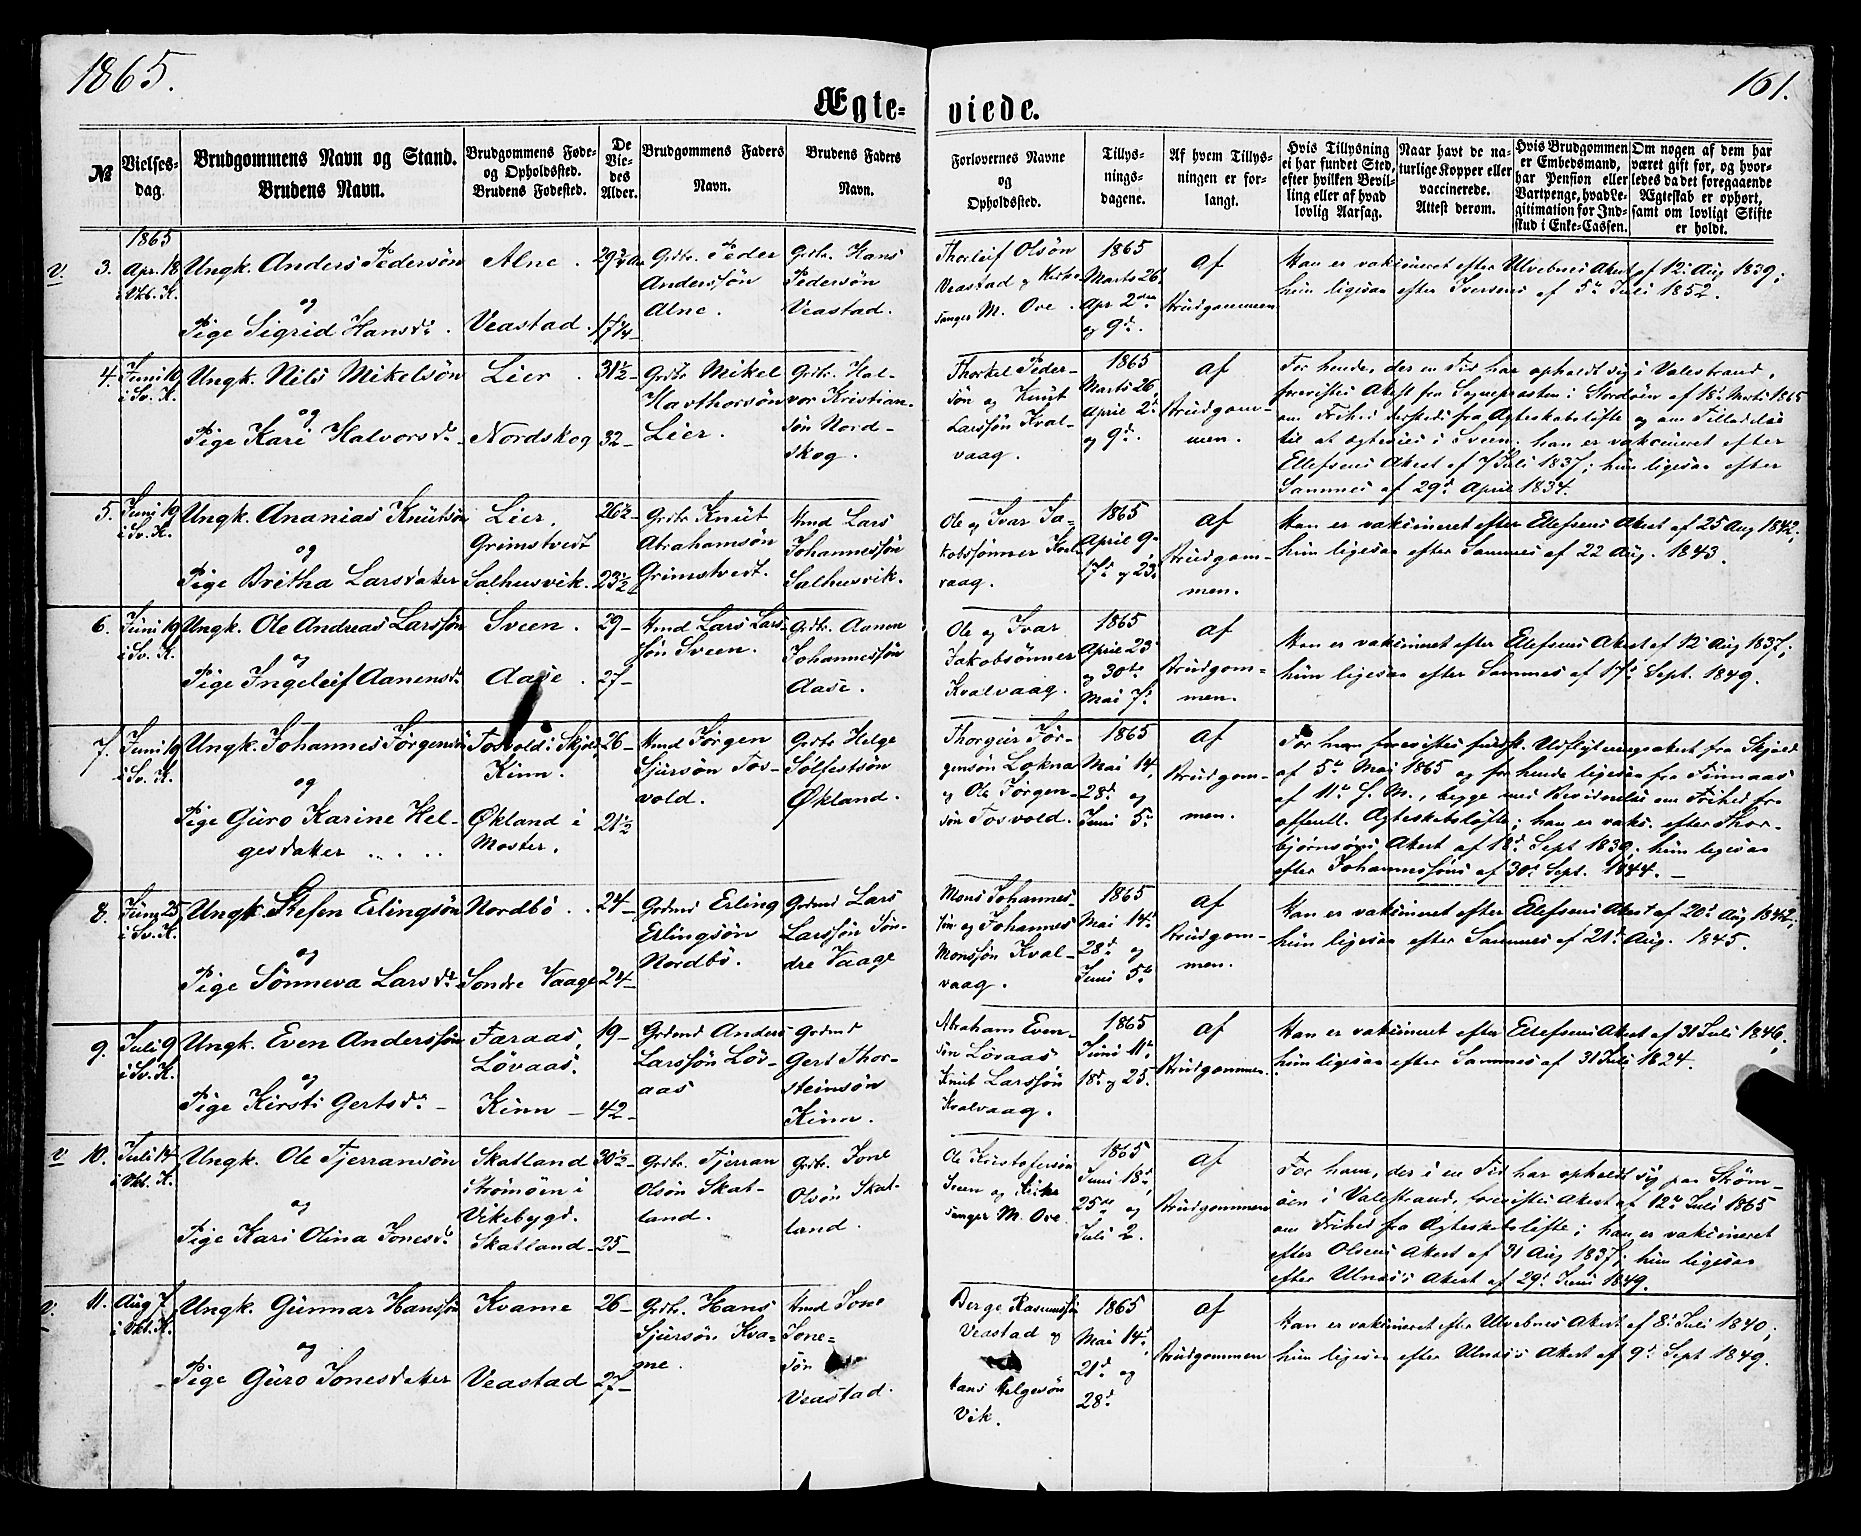 1865.
161.
Ægte=
viede.
№
Vielses-
dag.
Brudgommens Navn og Stand.
Brudens Navn.
Brudgommens Føde-
og Opholdssted.
Brudens Fødested.
De
Vie-
des
Alder.
Brudgommens Faders
Navn.
Brudens Faders
Navn.
Forlovernes Navne
og
Opholdssted.
Tillys-
nings-
dagene.
Af hvem Tillys-
ningen er for-
langt.
Hvis Tillysning
ei har fundet Sted,
efter hvilken Bevil-
ling eller af hvad
lovlig Aarsag.
Naar havt de na-
turlige Kopper eller
vaccinerede.
Attest derom.
Hvis Brudgommen
er Embedsmand,
har Pension eller
Vartpenge, hvad Le-
gitimation for Ind-
skud i Enke-Cassen.
Om nogen af dem har
været gift før, og hvor-
ledes da det foregaaende
Ægteskab er ophørt,
samt om lovligt Skifte
er holdt.
1865
v. 3.
Apr. 18
i Vkb. K.
Ungk. Anders Pedersön
og
Pige Sigrid Hansdr.
Alne.
Veastad.
17¼
Grdbr. Peder
Anderssön
Alne.
Grdbr. Hans
Pedersön
Veastad.
Thorleif Olsön
Veastad og Kirke-
sanger M. Ove.
1865
Marts 26
Apr 2den
og 9d.
af
Brudgommen
Han er vakcineret efter Ulvebnes Attest af 12. Aug 1839;
hun ligesaa efter Iversens af 5te Juli 1852.
4.
Juni 19
i Sv. K.
Ungk. Nils Mikelsön
og
Pige Kari Halvorsdr.
Lier.
Nordskog
31½
32
Grdbr Mikel
Havthorsön
Lier.
Grdbr. Hal-
vor Kristian-
sön Nord-
skog.
Thorkel Peder-
sön og Knut
Larssön Kval-
vaag.
1865
Marts 26
April 2d
og 9d.
af
Brudgom-
men.
For hende, der en Tid har opholdt sig i Valestrand,
forevistes Attest fra Sognepræsten i Stordöen af 18. Marts 1865
om Frihed dersteds fra Ægteskabslöfte og om Tilladelse
til at ægtevies i Sveen; han er vakcineret efter
Ellefsens Attest af 7 Juli 1837; hun ligesaa efter
Sammes af 29d. April 1834.
5.
Juni 19
i Sv. K.
Ungk. Ananias Knutsön
og
Pige Britha Larsdatter
Lier.
Grimstvedt
Salhusvik.
26½
23½
Grdbr Knut
Abrahamsön
Grimstvedt.
Hmd Lars
Johannessön
Salhusvik.
Ole og Ivar Ja-
kobsönner Kval-
vaag.
1865
April 9
17d og 23.
af
Brudgom-
men.
Han er vakcineret efter Ellefsens Attest af 25 Aug 1842;
hun ligesaa efter Sammes af 22 Aug. 1843.
6.
Juni 19
i Sv. K.
Ungk. Ole Andreas Larssön
og
Pige Ingeleif Aanensdr.
Sveen.
Aase.
29
27
Hmd Lars Lars-
sön Sveen.
Grdbr. Aanen
Johannessön
Aase.
Ole og Ivar
Jakobsönner
Kvalvaag.
1865
April 23
og 30te
Mai 7d.
af
Brudgom-
men.
Han er vakcineret efter Ellefsens Attest af 12 Aug 1837;
hun ligesaa efter Sammes af 17d Sept. 1849.
7.
Juni 19
i Sv. K.
Ungk. Johannes Jörgensön
og
Pige Guro Karine Hel-
gesdatter
Tosvold i Skjold
Kinn.
Økland i
Moster.
26
21½
Hmd Jörgen
Sjursön Tos-
vold.
Grdbr Helge
Sölfestsön
Økland.
Thorgeir Jör-
gensön Lokna
og Ole Jörgen-
sön Tosvold.
1865
Mai 14,
28d og
Juni 5.
af
Brudgom-
men.
For ham forevistes Udflytningsattest fra Skjold
af 5te Mai 1865 og for hende ligesaa fra Finnaas
af 11te s. M., begge med Bevidnelse om Frihed fra
offentl. Ægteskabslöfte; han er vakc. efter Thor-
björnsöns Attest af 18d Sept 1839; hun ligesaa
efter Johannessöns af 30d Sept. 1844.
8.
Juni 25
i Sv. K.
Ungk. Stefen Erlingsön
og
Pige Sönneva Larsdr.
Nordbö.
Söndre Vaage
24
24
Grdmd Erling
Erlingsön
Nordbö.
Grdmd Lars
Larssön Sön-
dre Vaage
Mons Johannes-
sön og Johannes
Monssön Kval-
vaag.
1865
Mai 14d
28d og
Juni 5te
af
Brudgom-
men.
Han er vakcineret efter Ellefsens Attest af 20d Aug 1842;
hun ligesaa efter Sammes af 21d Aug. 1845.
9.
Juli 9
i Sv. K.
Ungk. Even Anderssön
og
Pige Kirsti Gertsdr.
Faraas,
Lövaas.
Kinn
19
42
Grdmd Anders
Larssön Löv-
aas
Grdmd
Gert Thor-
steinsön
Kinn.
Abraham Even-
sön Lövaas
Knut Larssön
Kvalvaag.
1865
Juni 11te
18d og 25.
af
Brudgommen.
Han er vakcineret efter Ellefsens Attest af 31 Juli 1846;
hun ligesaa efter Sammes af 31 Juli 1824.
v 10.
Juli 14
i Vkb. K.
Ungk. Ole Tjerransön
og
Pige Kari Olina Jonesdr.
Skatland
Strömöen i
Vikebygd.
Skatland
30½
25
Grdbr. Tjerran
Olsön Skat-
land.
Grdbr. Jone
Olsön Skat-
land.
Ole Kristofersön
Sveen og Kirke-
sanger M. Ove.
1865
Juni 18d,
25de og
Juli 2.
af
Brudgommen
For ham, der i en Tid har opholdt sig paa Ström-
öen i Valestrand, forevistes Attest af 12te Juli 1865
om Frihed fra Ægteskabslöfte; han er vakcineret
efter Olsens Attest af 31 Aug 1837; hun ligesaa
efter Ulnæs's Attest af 29d Juni 1849.
v. 11.
Aug 7
i Vkb. K.
Ungk. Gunnar Hanssön
og
Pige Guro Jonesdatter
Kvame
Veastad
26
27
Grdbr. Hans
Sjursön Kva-
me.
Hmd Jone
Jone-
sön
Veastad.
Berge Rasmussön
Veastad og
Hans Helgesön
Vik.
1865
Mai 14d,
21d og
28d
af
Brudgommen
Han er vakcineret efter Ulvebnes Attest af 8d Juli 1840;
hun ligesaa efter Ulnæs's Attest af 9d Sept 1849.